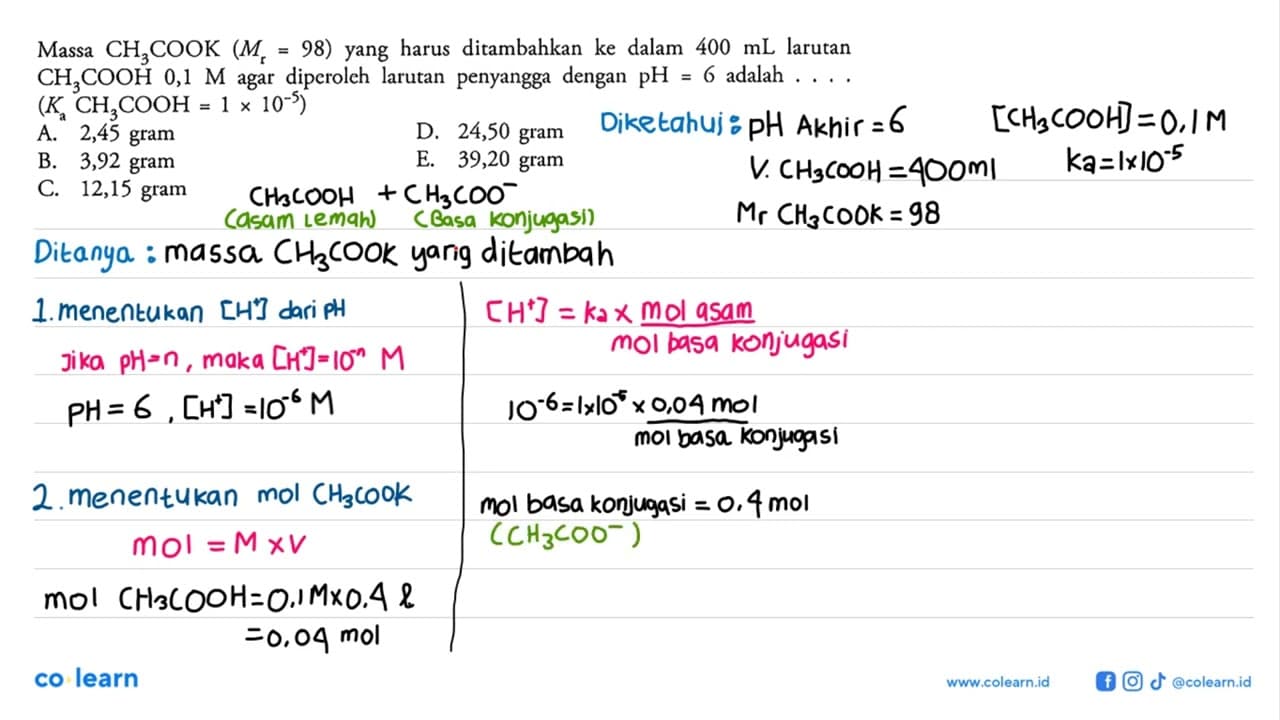 Massa CH₃COOK (Mᵣ = 98) yang harus ditambahkan ke dalam 400 mL larutan
CH₃COOH 0,1 M agar diperoleh larutan penyangga dengan pH = 6 adalah . . . .
(Kₐ CH₃COOH = 1 × 10⁻⁵)
A. 2,45 gram
B. 3,92 gram
C. 12,15 gram
D. 24,50 gram
E. 39,20 gram
Diketahui : pH Akhir = 6
V. CH₃COOH = 400ml
Mr CH₃COOK = 98
[CH₃COOH] = 0,1 M
ka = 1x10⁻⁵
CH₃COOH + CH₃COO⁻
(asam Lemah) (Basa konjugasi)
Ditanya : massa CH₃COOK yang ditambah
1. menentukan [H⁺] dari pH
Jika pH=n, maka [H⁺]=10⁻ⁿ M
PH = 6 , [H⁺] =10⁻⁶ M
2. menentukan mol CH₃COOK
mol = M x V
mol CH₃COOH = 0,1 M x 0.4 l
= 0,04 mol
[H⁺] = ka x mol asam
mol basa konjugasi
10⁻⁶ = 1x10⁻⁵ x 0,04 mol
mol basa konjugasi
mol basa konjugasi = 0.4 mol
(CH₃COO⁻)
co learn
www.colearn.id
@colearn.id